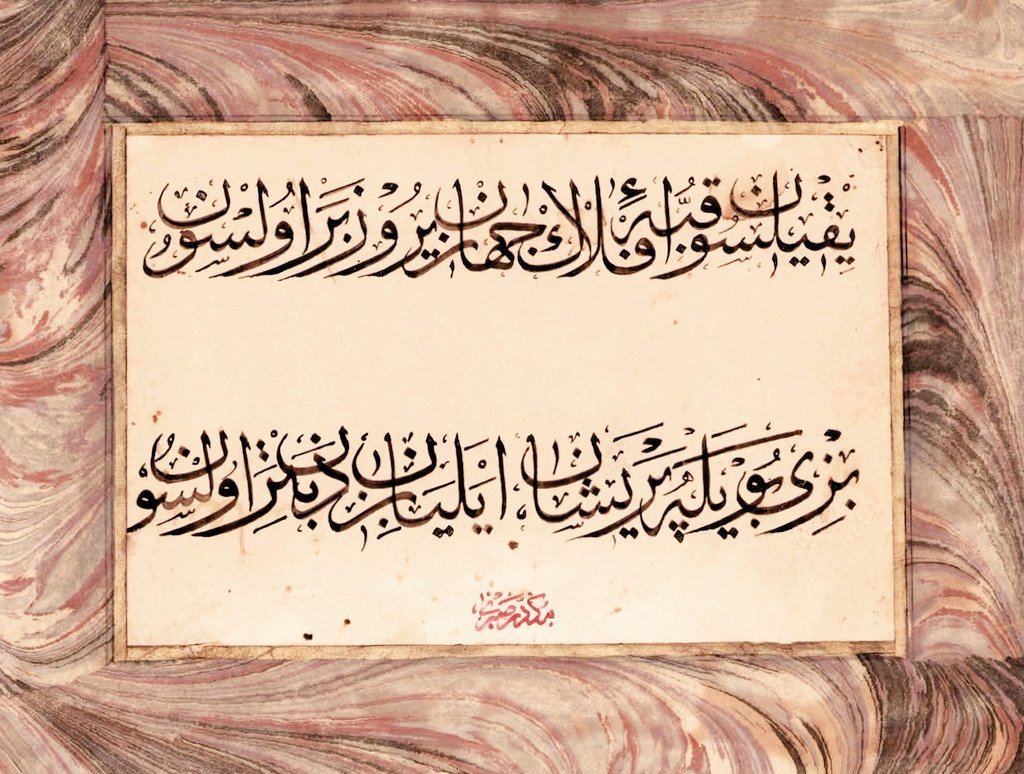 يقيلسون قبهٔ افلاك جهان زير و زبر اولسون
بزى بويله پريشان ايليان بزدن بتر اولسون